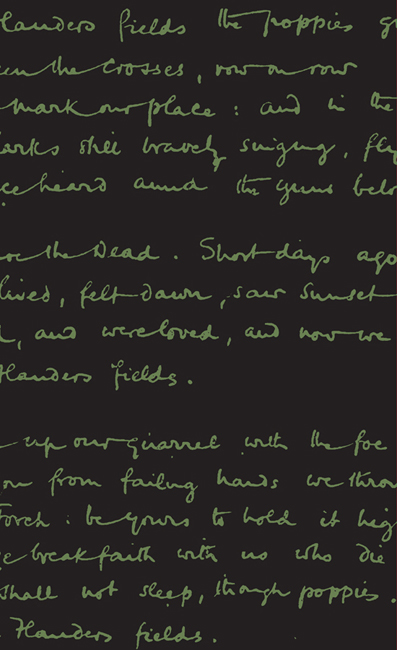 Flanders fields the poppies g
een the Crosses, row on row
mark our place : and in the
arks still bravely singing, fly
ce heard amid the guns belo
are the Dead. Short days ago
lived, felt dawn, saw sunset
d, and were loved, and now we
Flanders fields.
up our quarrel with the foe
you from failing hands we throw
Torch : be yours to hold it hig
e break faith with us who die
shall not sleep, though poppies
Flanders fields.